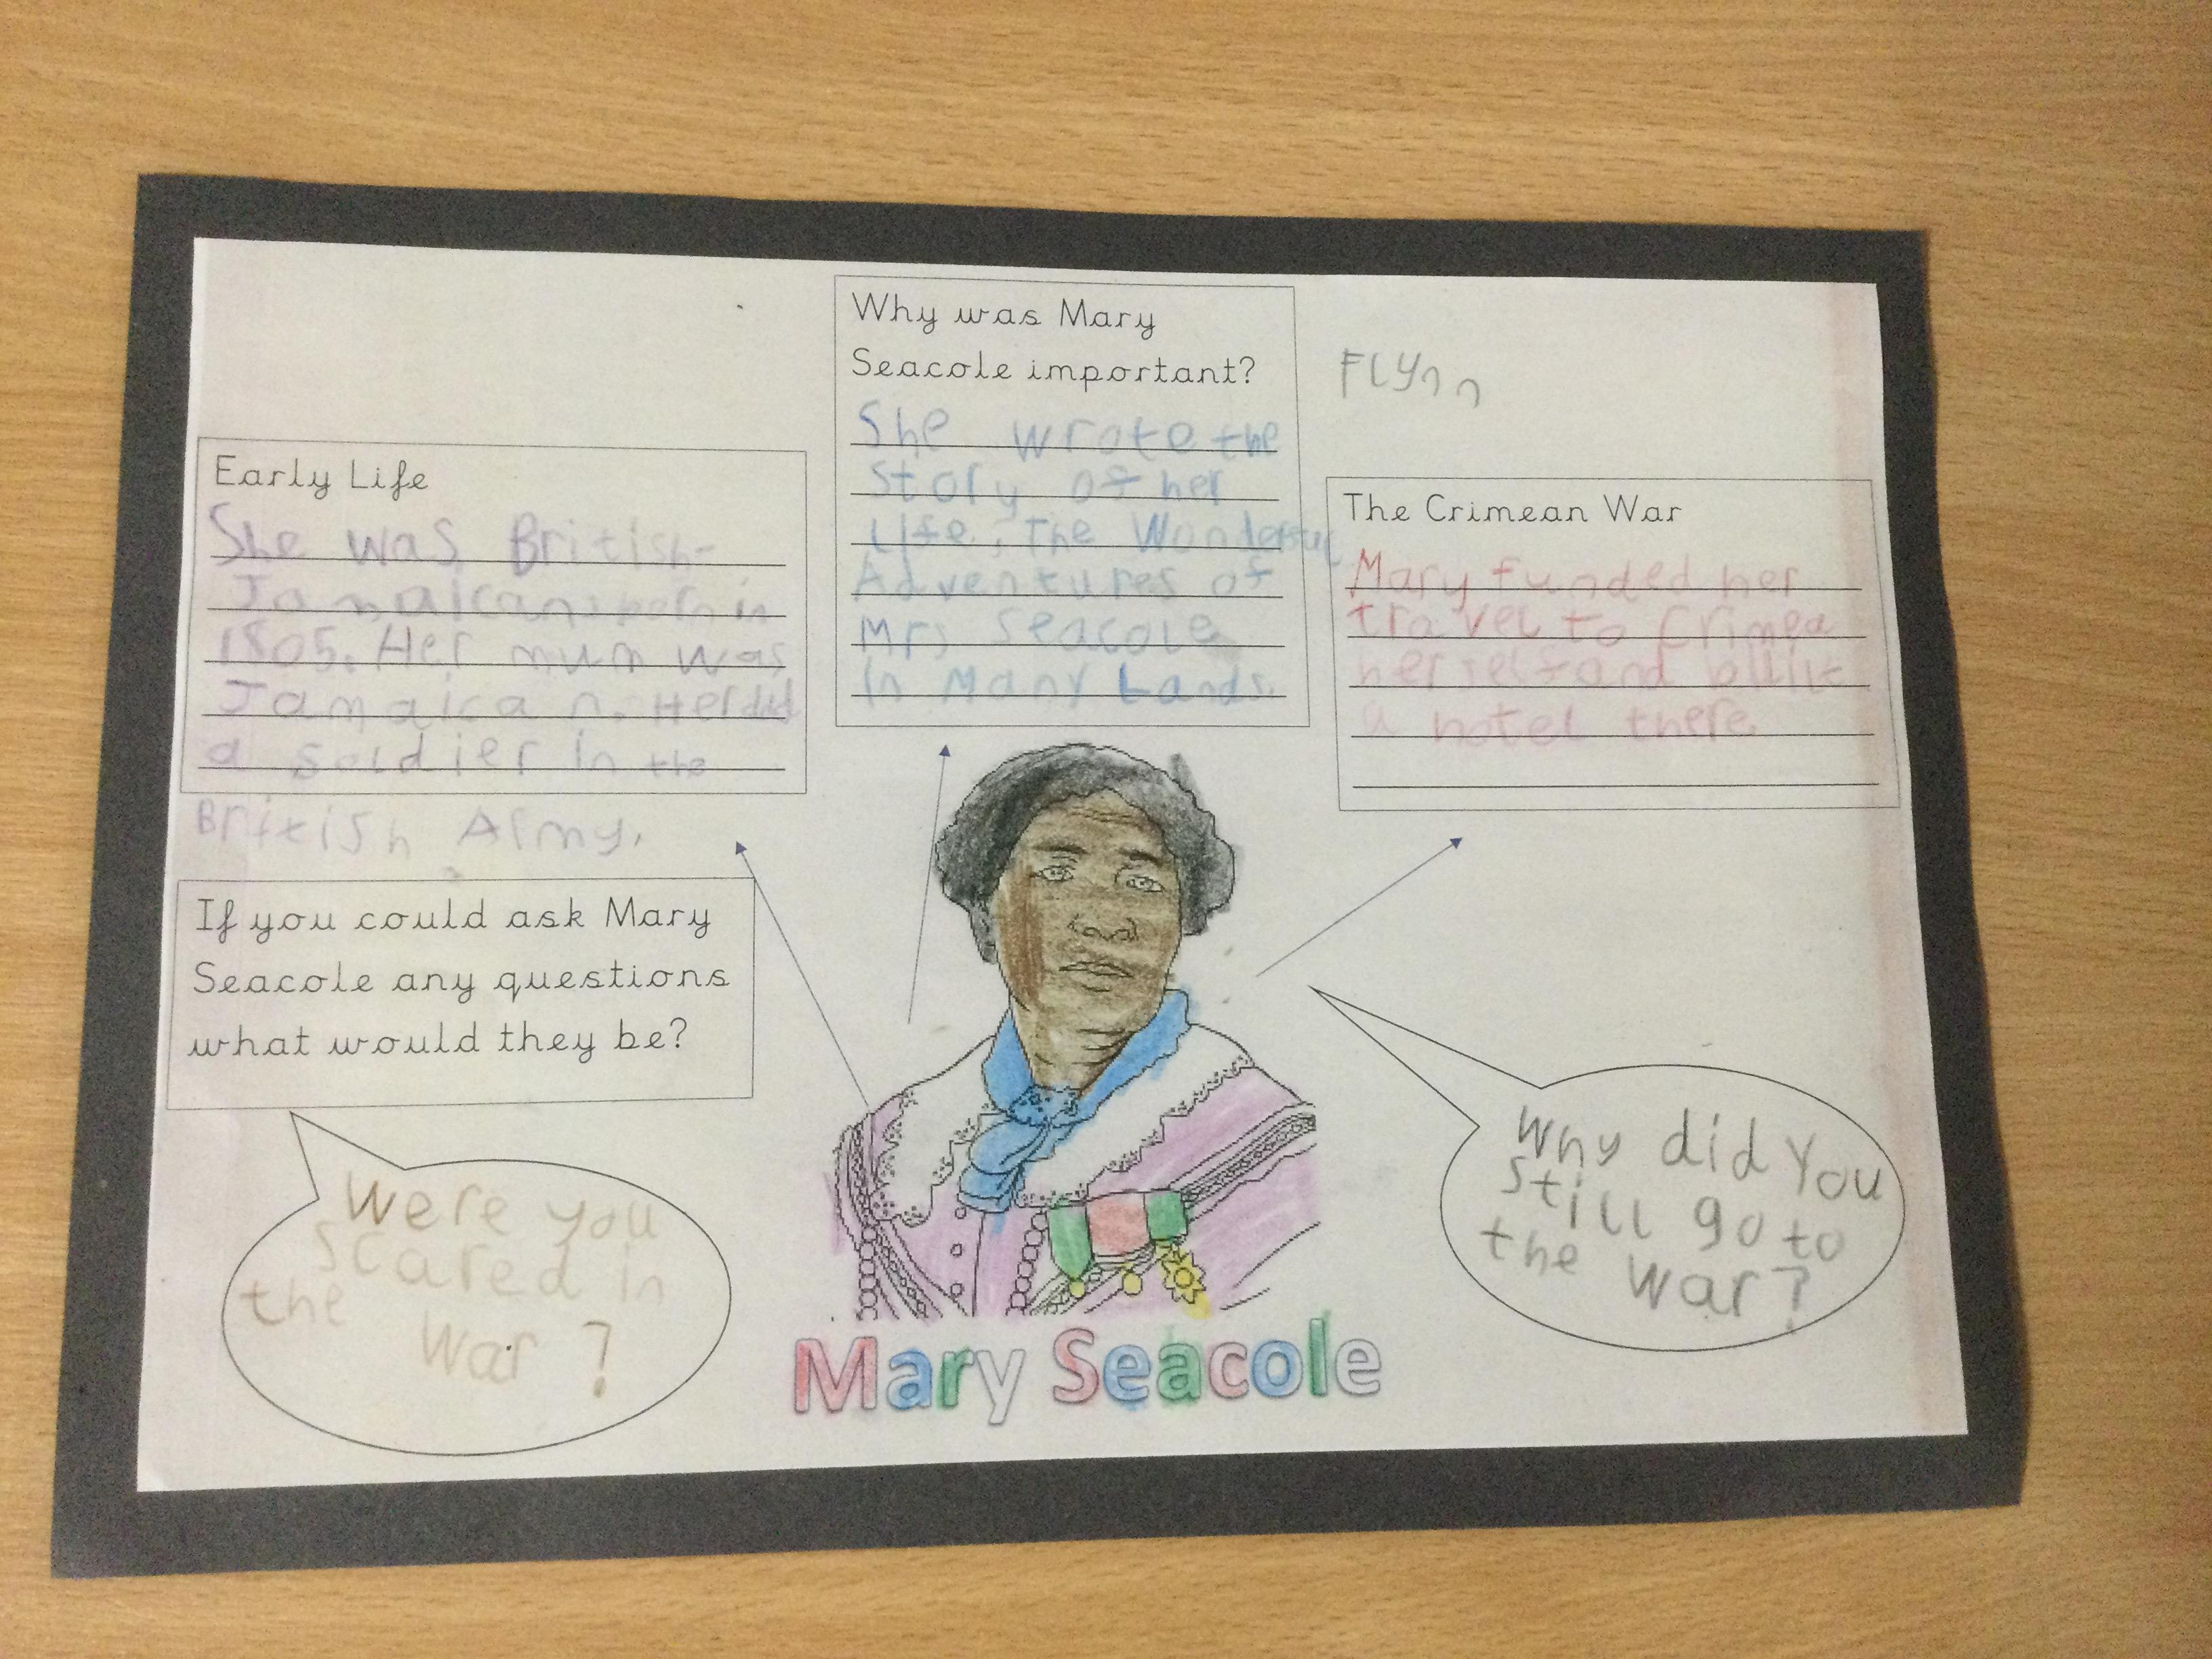 Why was Mary
Seacole important?
She wrote the
story of her
Life, The Wonderful
Adventures of
Mrs Seacole
in Many Lands.
FLYnn
Early Life
She was British-
Jamaican born in
1805. Her mum was
Jamaican. Her dad
a soldier in the
British Army.
The Crimean War
Mary funded her
travel to Crimea
herself and built
a hotel there
If you could ask Mary
Seacole any questions
what would they be?
Were you
scared in
the war?
Why did You
still go to
the war?
Mary Seacole